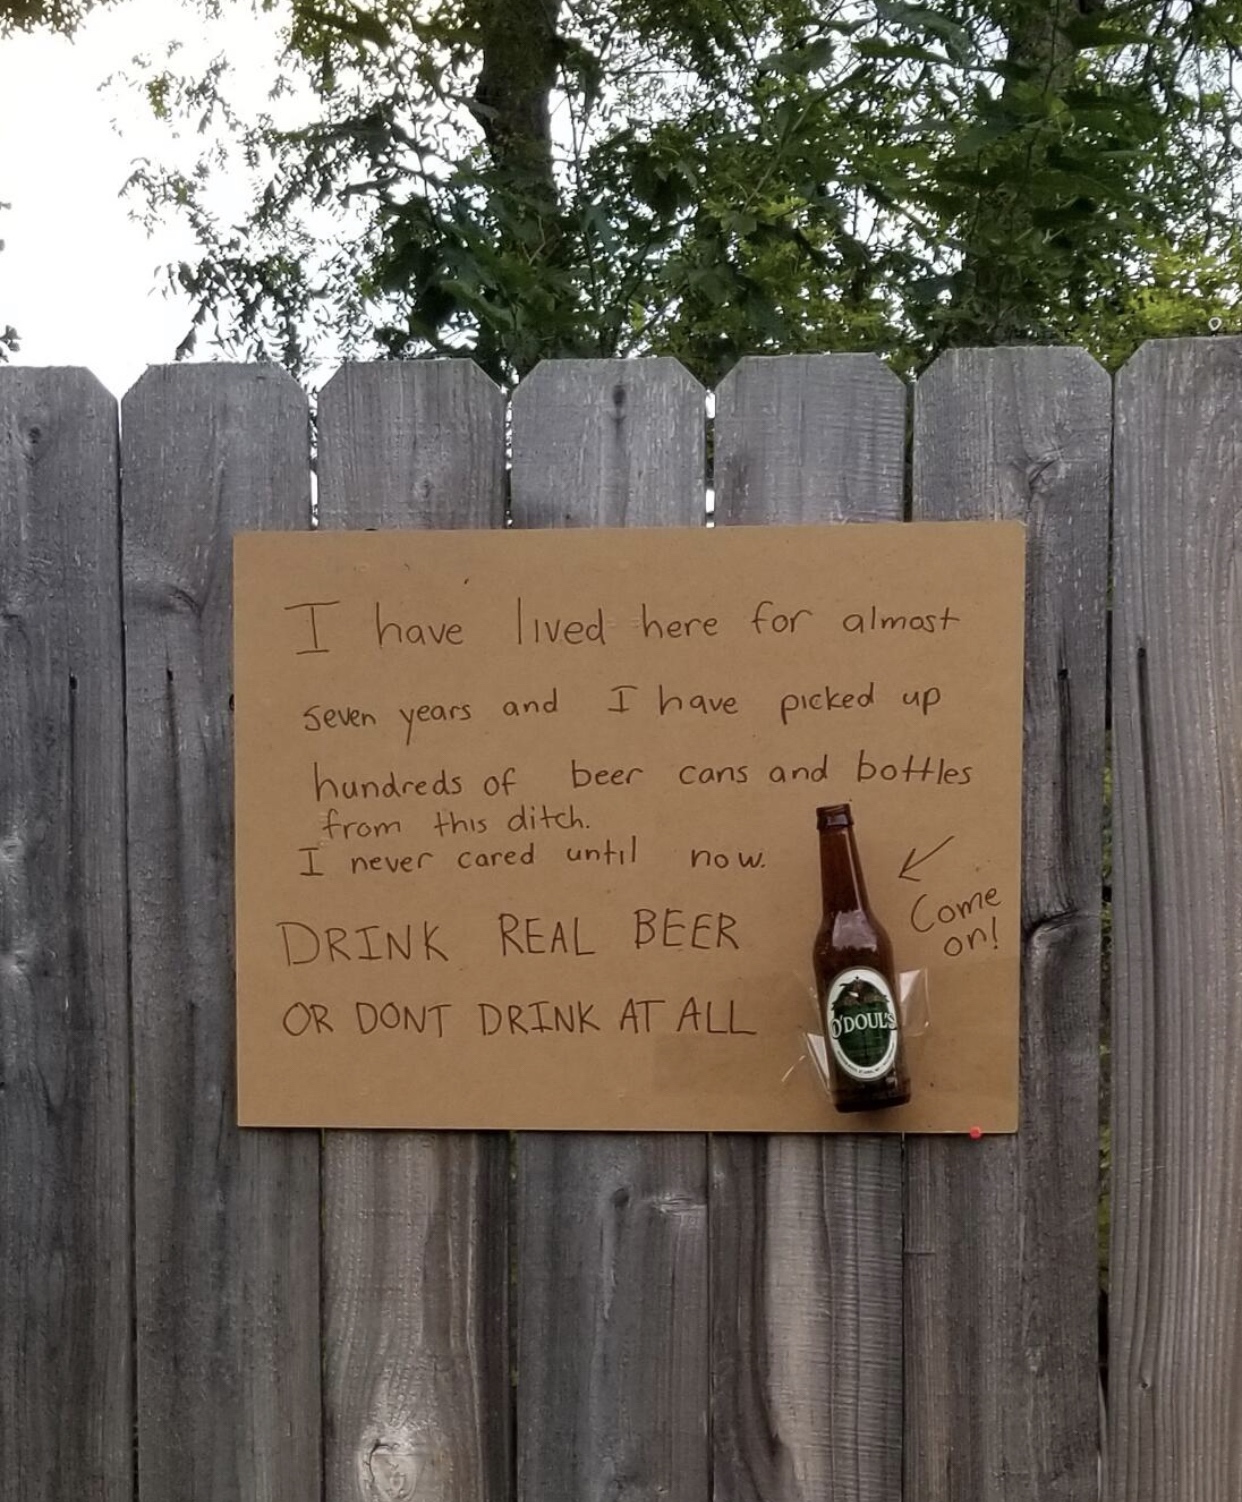 I have lived here for almost
seven years and I have picked up
hundreds of beer cans and bottles
from this ditch.
I never cared until now.
Come
on!
DRINK REAL BEER
OR DONT DRINK AT ALL
O'DOUL'S